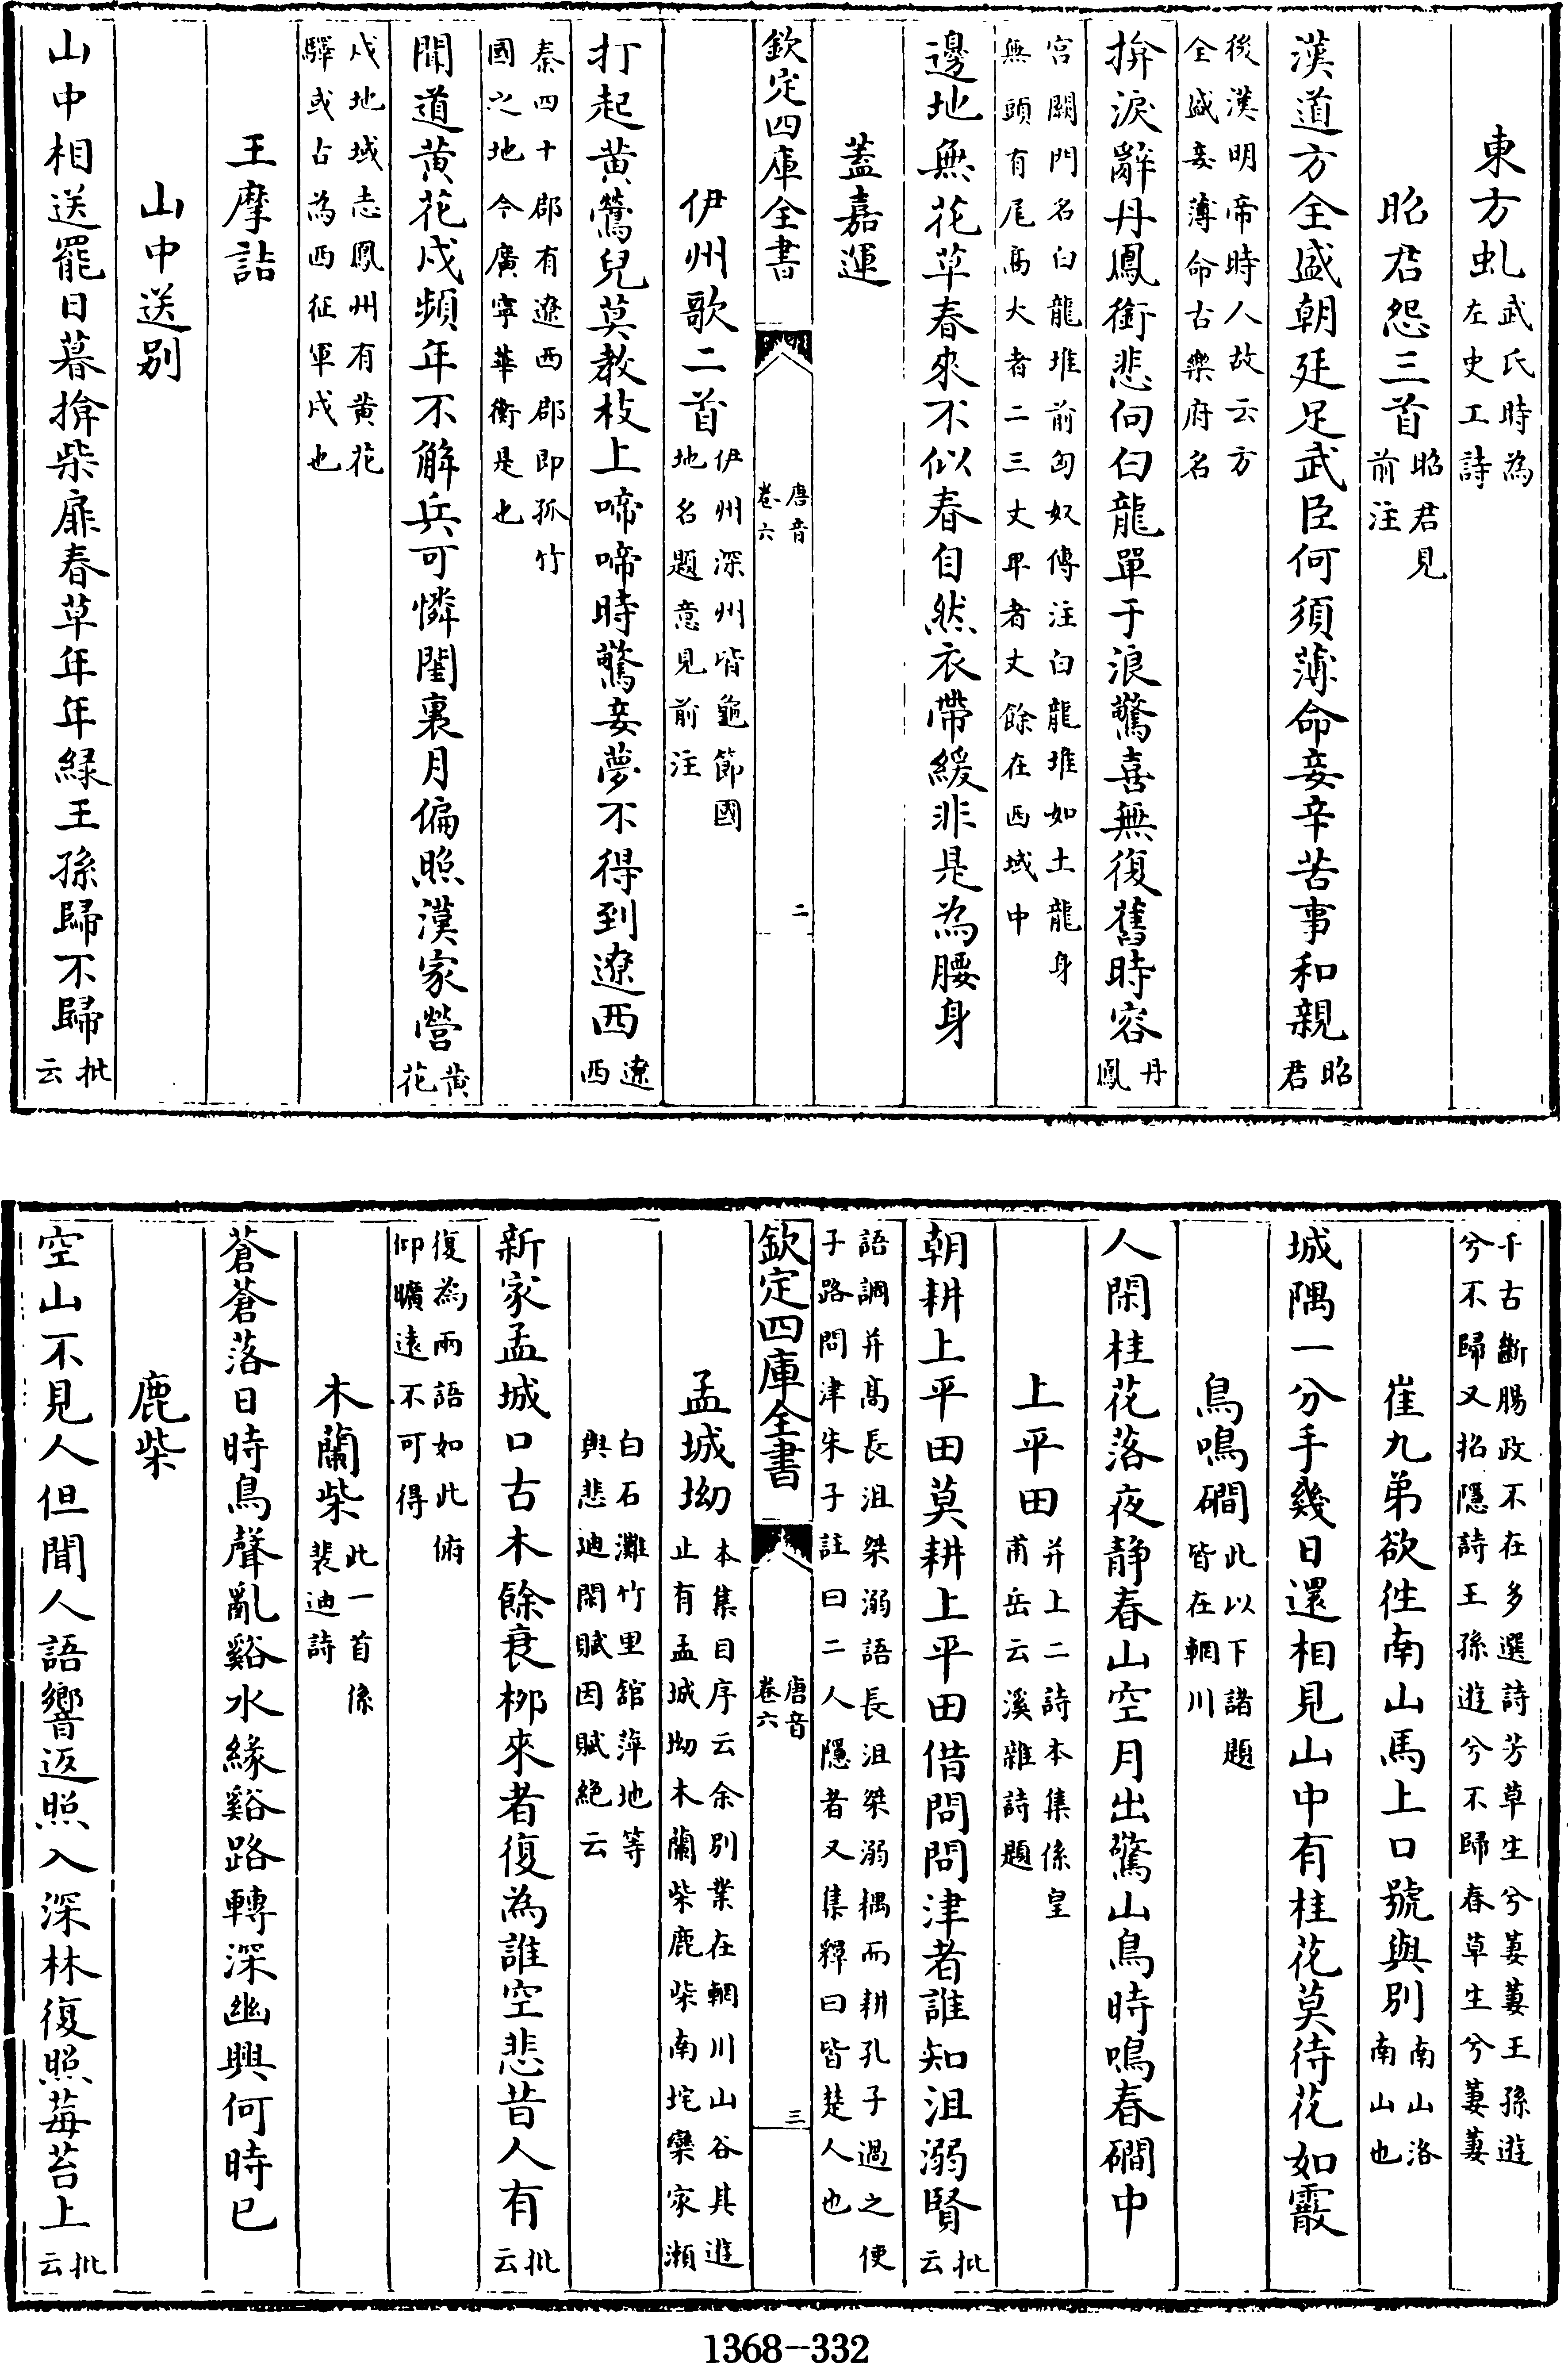 東方虬武氏時為左史工詩
昭君怨三首昭君見前注
漢道方全盛朝廷足武臣何須薄命妾辛苦事和親昭君
後漢明帝時人故云方全盛妾薄命古樂府名
揜淚辭丹鳳銜悲向白龍單于浪驚喜無復舊時容丹鳳
宫闕門名白龍堆前匈奴傳注白龍堆如土龍身無頭有尾髙大者二三丈卑者丈餘在西域中
邊地無花草春來不似春自然衣帶緩非是為腰身
蓋嘉運
欽定四庫全書 唐音卷六 二
伊州歌二首伊州深州皆龜節國地名題意見前注
打起黄鶯兒莫教枝上啼啼時驚妾夢不得到遼西遼西
秦四十郡有遼西郡即孤竹國之地今廣寧華衡是也
聞道黄花戍頻年不解兵可憐閨裏月偏照漢家營黄花
戍地域志鳳州有黄花驛或占為西征軍戍也
王摩詰
山中送别
山中相送罷日暮揜柴扉春草年年緑王孫歸不歸批云
千古斷腸政不在多選詩芳草生兮萋萋王孫遊兮不歸又招隱詩王孫遊兮不歸春草生兮萋萋
崔九弟欲徃南山馬上口號與别南山洛南山也
城隅一分手幾日還相見山中有桂花莫待花如霰
鳥鳴磵此以下諸題皆在輞川
人閑桂花落夜静春山空月出驚山鳥時鳴春磵中
上平田并上二詩本集係皇甫岳云溪雜詩題
朝耕上平田莫耕上平田借問問津者誰知沮溺賢批云
語調并髙長沮桀溺語長沮桀溺耦而耕孔子過之使子路問津朱子註曰二人隱者又集釋曰皆楚人也
欽定四庫全書 唐音卷六 三
孟城坳本集目序云余别業在輞川山谷其遊止有孟城坳木蘭柴鹿柴南垞欒家瀬
白石灘竹里舘萍地等與悲迪閑賦因賦絶云
新家孟城口古木餘衰栁來者復為誰空悲昔人有批云
復為兩語如此俯仰曠逺不可得
木蘭柴此一首係裴迪詩
蒼蒼落日時鳥聲亂谿水緣谿路轉深幽興何時已
鹿柴
空山不見人但聞人語響返照入深林復照莓苔上批云
1368-332